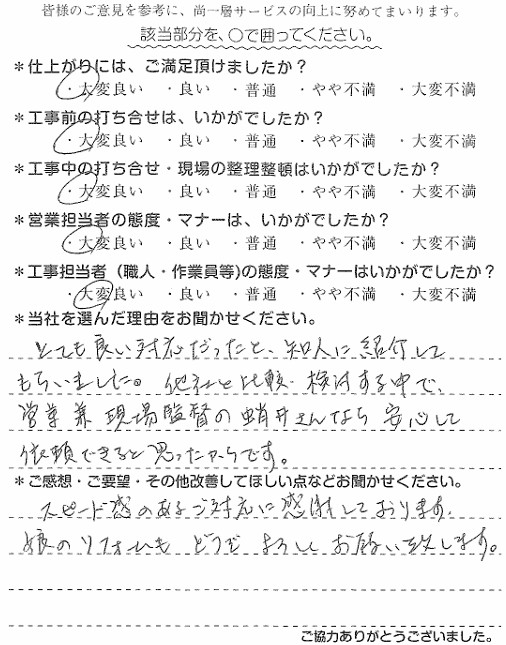 皆様のご意見を参考に、尚一層サービスの向上に努めてまいります。
該当部分を、○で囲ってください。
＊仕上がりには、ご満足頂けましたか？
・大変良い ・良い ・普通 ・やや不満 ・大変不満
＊工事前の打ち合せは、いかがでしたか？
・大変良い ・良い ・普通 ・やや不満 ・大変不満
＊工事中の打ち合せ・現場の整理整頓はいかがでしたか？
・大変良い ・良い ・普通 ・やや不満 ・大変不満
＊営業担当者の態度・マナーは、いかがでしたか？
・大変良い ・良い ・普通 ・やや不満 ・大変不満
＊工事担当者（職人・作業員等）の態度・マナーはいかがでしたか？
・大変良い ・良い ・普通 ・やや不満 ・大変不満
＊当社を選んだ理由をお聞かせください。
とても良い対応だったと、知人に紹介して
もらいました。他社と比較・検討する中で、
営業兼現場監督の蛸井さんなら安心して
依頼できると思ったからです。
＊ご感想・ご要望・その他改善してほしい点などお聞かせください。
スピード感のあるご対応に感謝しております。
娘のリフォームもどうぞよろしくお願い致します。
ご協力ありがとうございました。